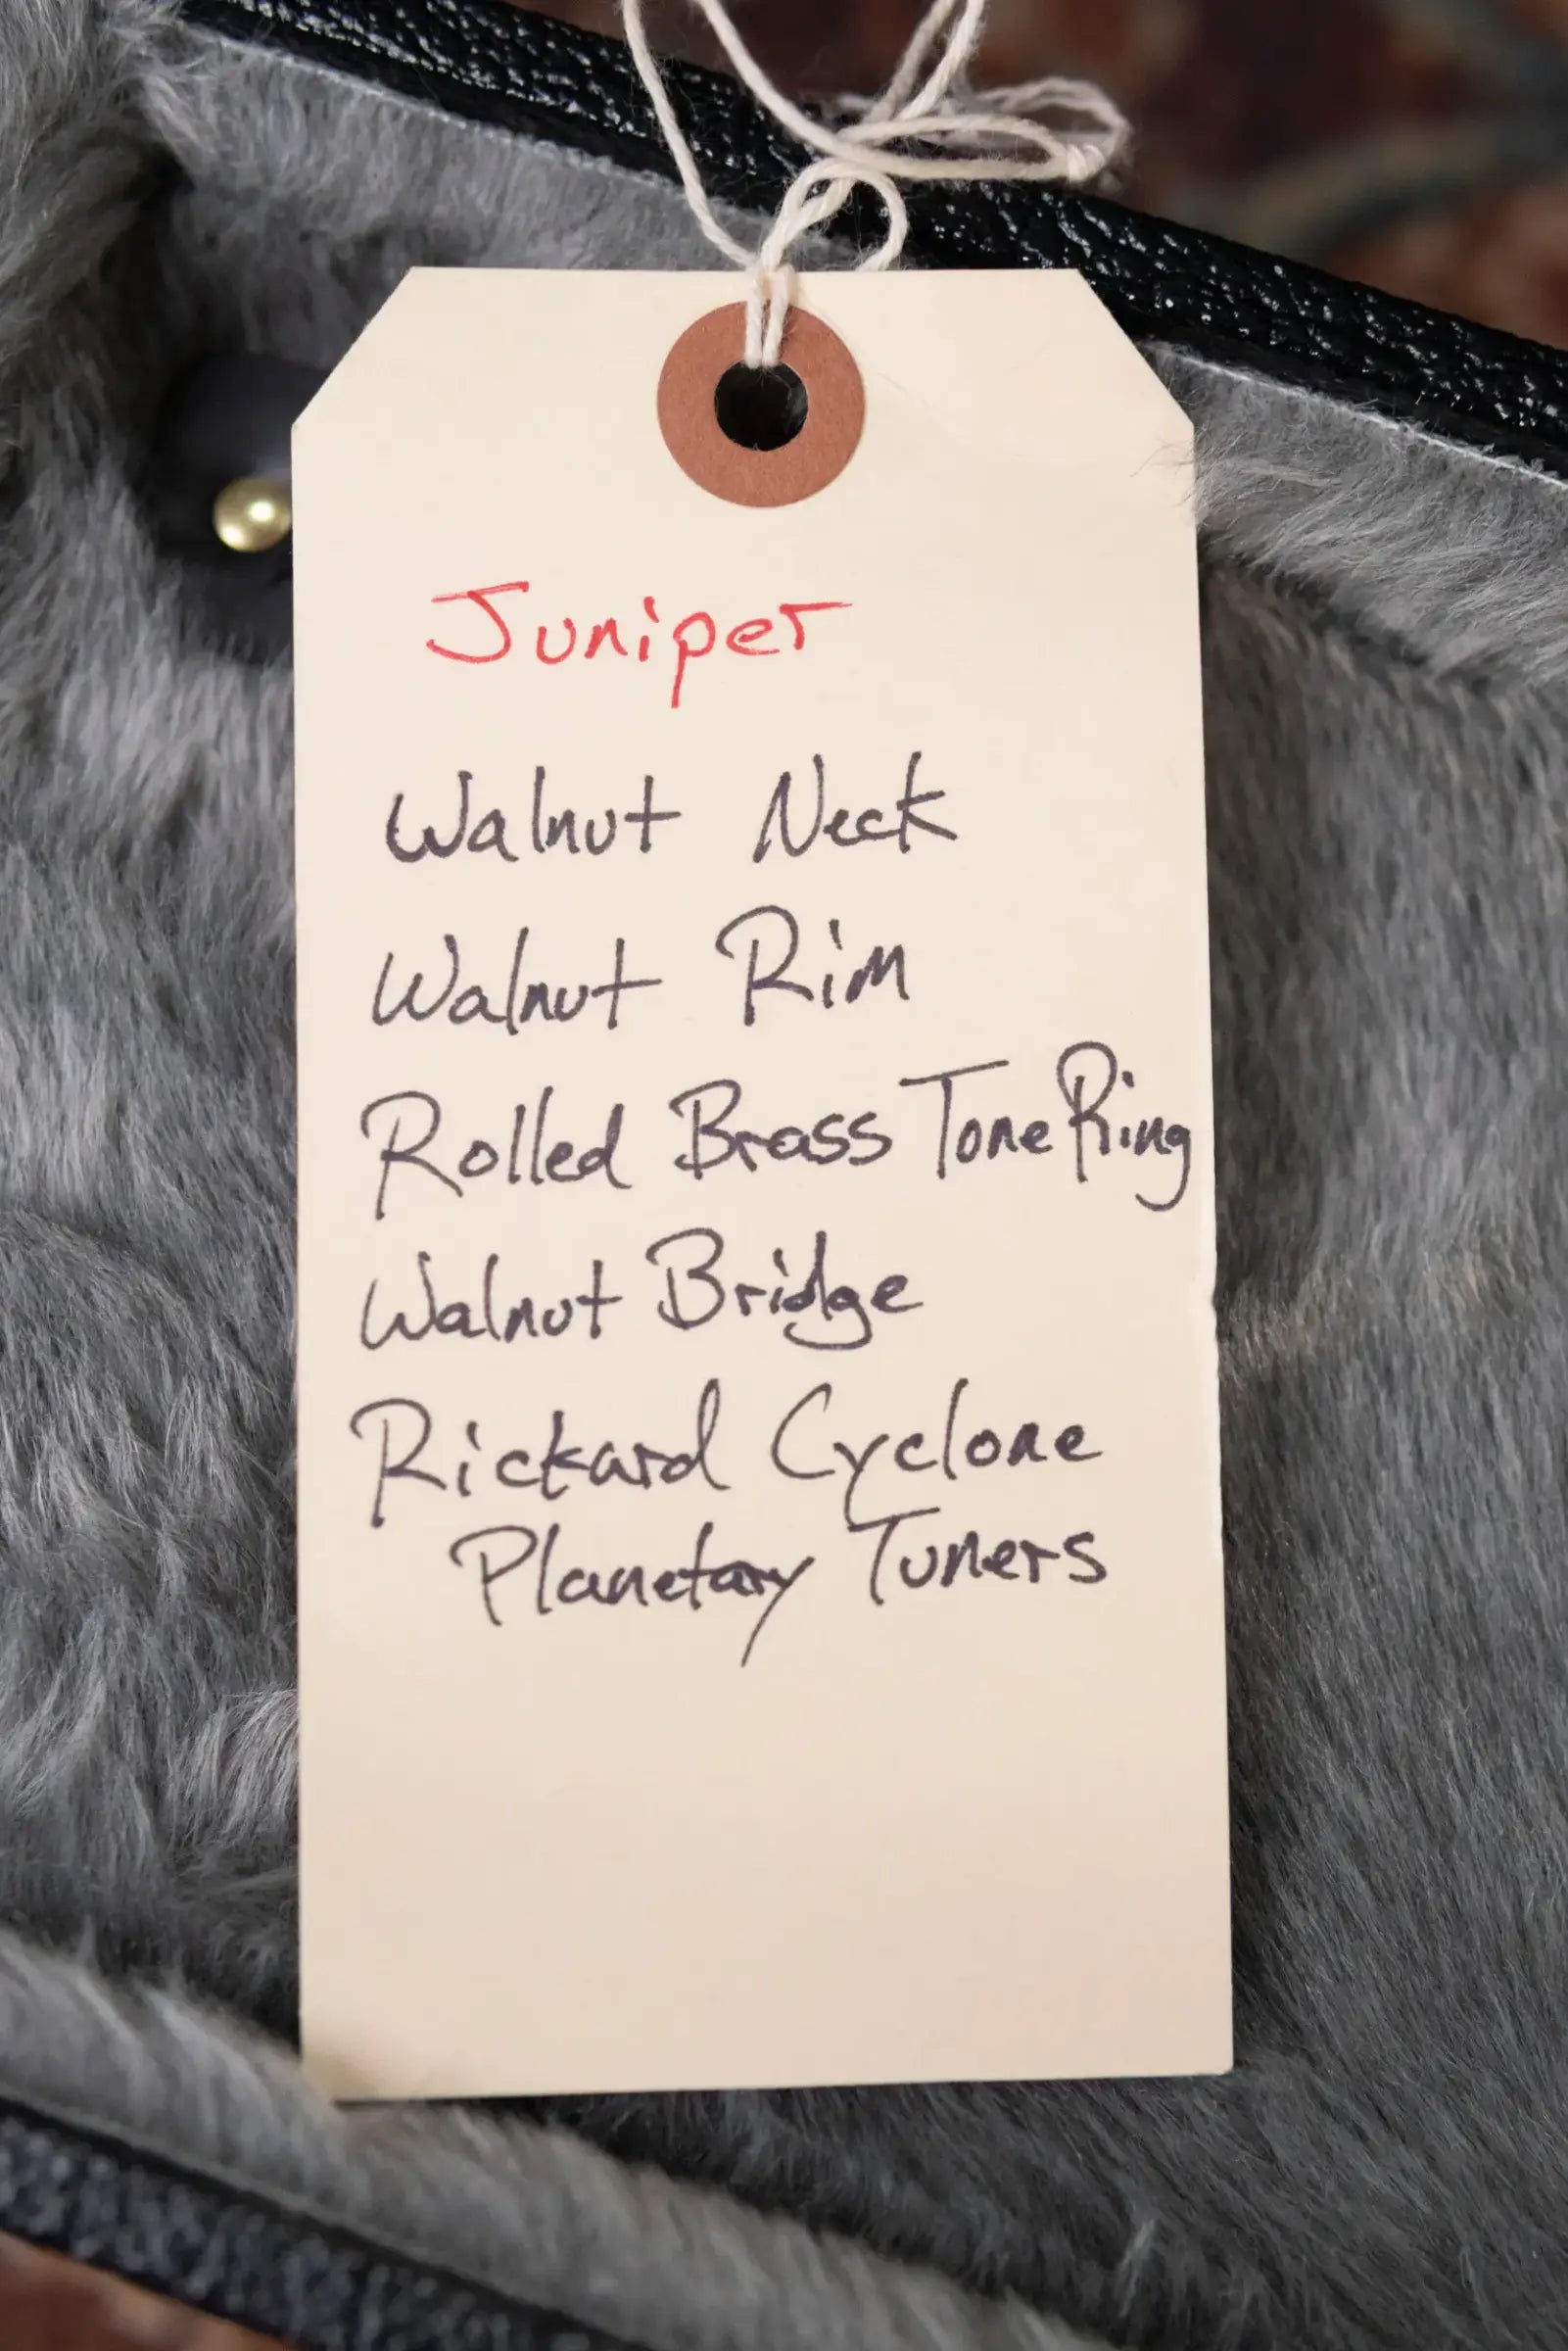 Juniper
Walnut Neck
Walnut Rim
Rolled Brass Tone Ring
Walnut Bridge
Rickard Cyclone
Planetary Tuners